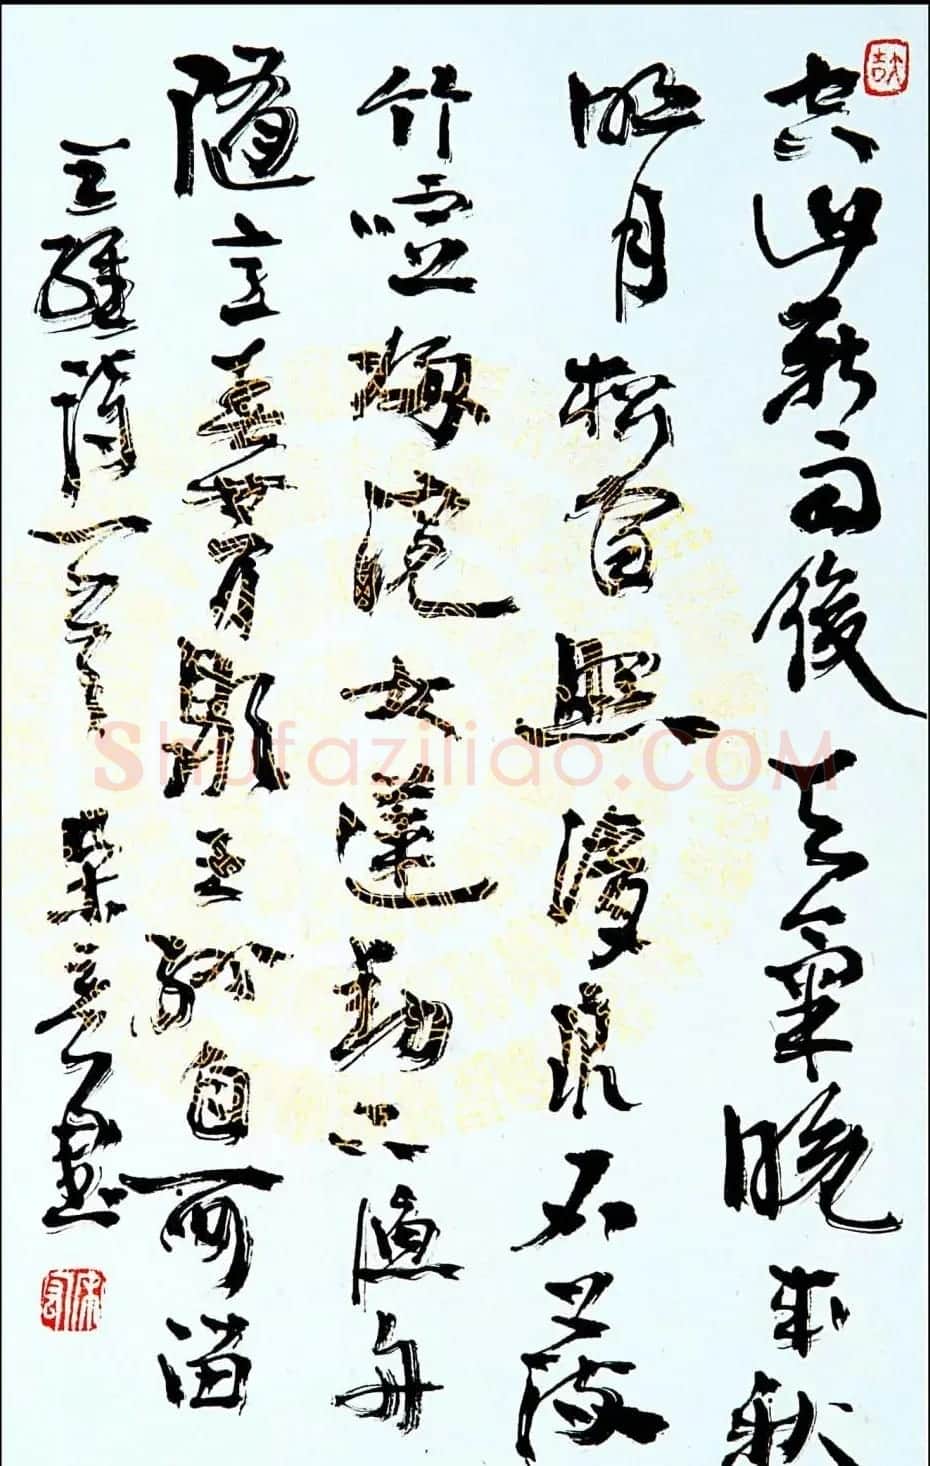 空山新雨後天氣晚來秋
明月松間照清泉石上流
竹喧歸浣女蓮動下漁舟
隨意春芳歇王孫自可留
王維詩一首 書
Shufaziliao.COM